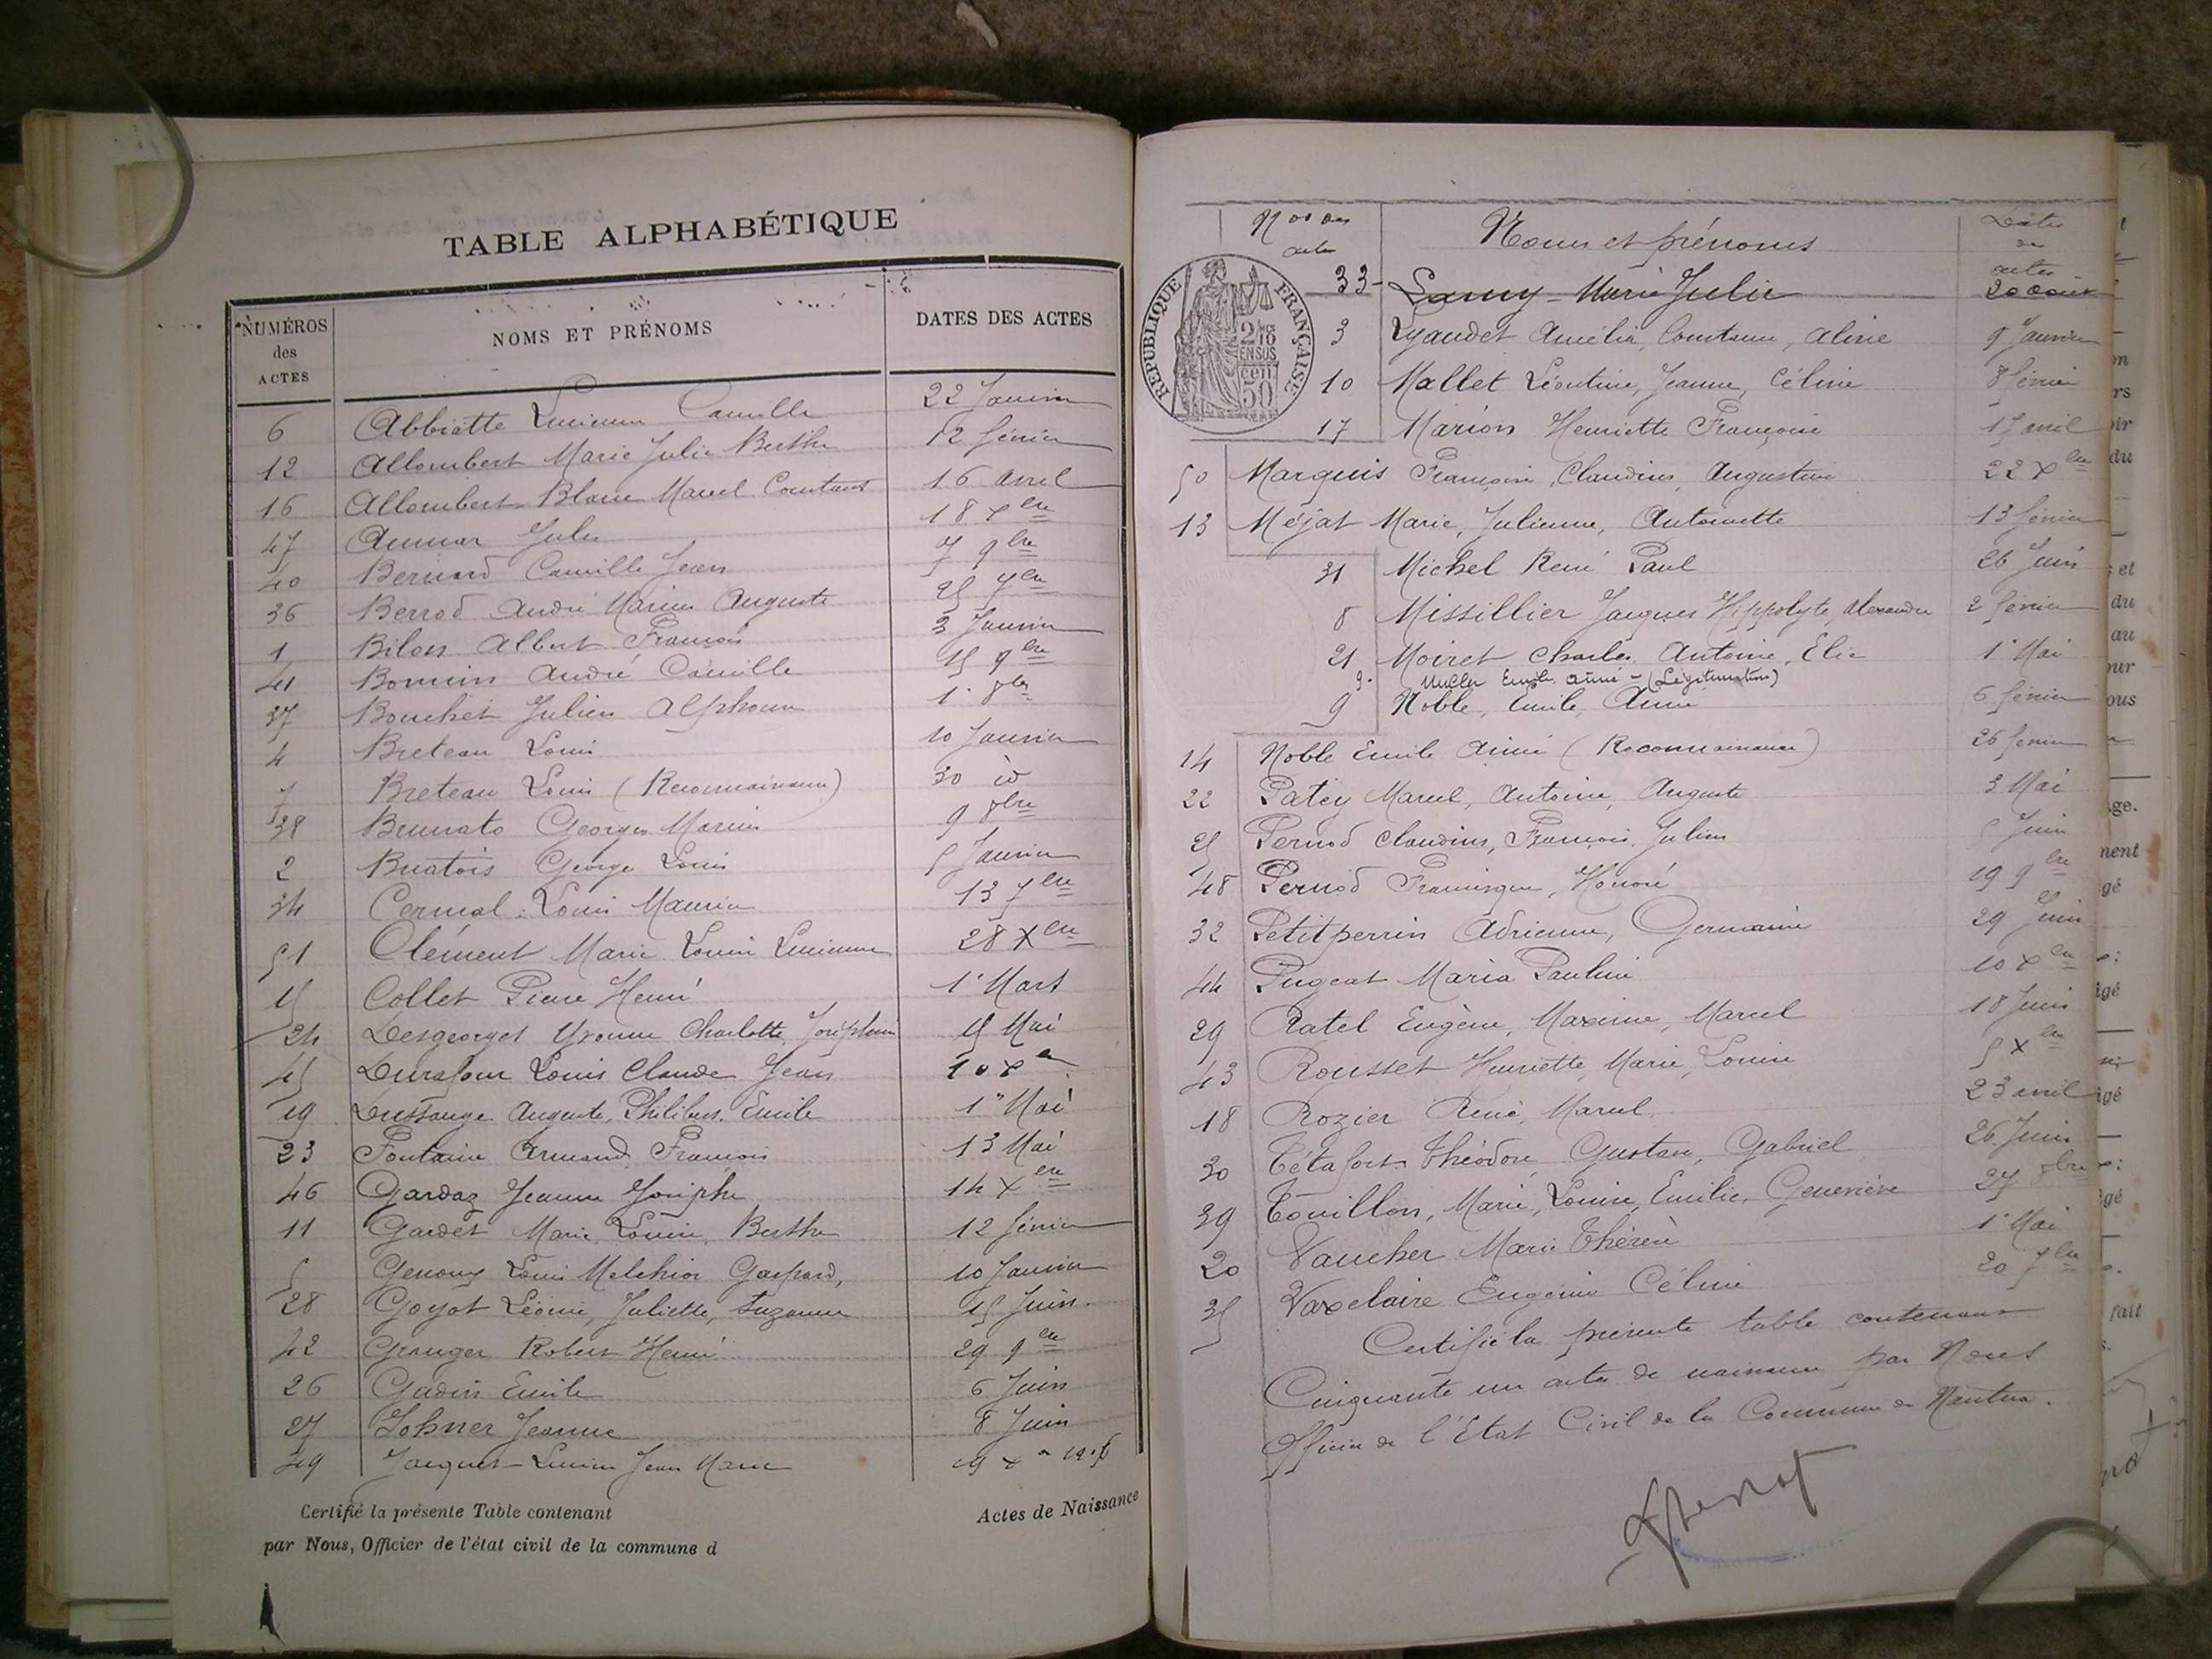 TABLE ALPHABÉTIQUE
NUMÉROS des ACTES NOMS ET PRÉNOMS DATES DES ACTES
6 Abbiatte Lucienne Camille 22 Janvier
12 Allombert Marie Julie Berthe 12 février
16 Allombert Blanc Marcel Constant 16 avril
47 Jules 18 Xbre
40 Bernard Camille Jean 7 9bre
36 Berrod André Marius Auguste 25 7bre
1 Bilon Albert François 3 Janvier
41 André Camille 15 9bre
37 Bouchet Julien Alphonse 1er 8bre
4 Breteau Louis 10 Janvier
7 Breteau Louis (Reconnaissance) 30 id
38 Brunato Georges Marius 9 8bre
2 Buatois George Louis 5 Janvier
34 Cermal Louis Maurice 13 7bre
51 Clément Marie Louise Lucienne 28 Xbre
15 Collet Pierre Henri 1er Mars
24 Desgeorges Yvonne Charlotte Joséphine 15 Mai
45 Durafour Louis Claude Jean 10 Xbre
19 Dussouge Auguste, Philibert, Emile 1er Mai
23 Fontaine Armand François 13 Mai
46 Gardaz Jeanne Josèphe 14 Xbre
11 Gardet Marie Louise Berthe 12 février
5 Genoux Louis Melchior Gaspard, 10 Janvier
28 Goyot Léonie, Juliette, Suzanne 15 Juin
42 Granger Robert Henri 29 9bre
26 Gudin Emile 6 Juin
27 Johner Jeanne 8 Juin
49 Jacques Lucien Jean Marie 19 Xbre
Certifié la présente Table contenant Actes de Naissance
par Nous, Officier de l'état civil de la commune d
Nos des actes Noms et prénoms Dates des actes
RÉPUBLIQUE FRANÇAISE
33 Lamy - Marie Julie 20 août
3 Lyaudet Amélie, Constance, Aline 9 Janvier
10 Mallet Léontine, Jeanne, Céline 8 février
17 Marion Henriette Françoise 17 avril
50 Marquis Françoise, Claudine, Augustine 22 Xbre
13 Méjat Marie, Julienne, Antoinette 13 février
31 Michel René Paul 26 Juin
8 Missillier Jacques Hippolyte, Alexandre 2 février
21 Moiret Charles Antoine, Elie 1er Mai
9. Muller Emile Aimé - (Légitimation)
9 Noble, Emile, Aimé 6 février
14 Noble Emile Aimé (Reconnaissance) 26 février
22 Patey Marcel, Antoine, Auguste 3 Mai
25 Pernod Claudius, François, Julien 5 Juin
48 Pernod Francisque, Honoré 19 9bre
32 Petitperrin Adrienne, Germaine 29 Juin
44 Pugeat Maria Pauline 10 Xbre
29 Ratel Eugène, Maxime, Marcel 18 Juin
43 Rousset Henriette, Marie, Louise 5 Xbre
18 Rozier René, Marcel 23 avril
30 Tétafort Théodore, Gustave, Gabriel 26 Juin
39 Touillon, Marie, Louise, Emilie, Geneviève 27 8bre
20 Vaucher Marie Thérèse 1er Mai
35 Vaxelaire Eugénie Céline 20 7bre
Certifié la présente table contenant
Cinquante un actes de naissance par Nous
Officier de l'Etat Civil de la Commune de Nantua.